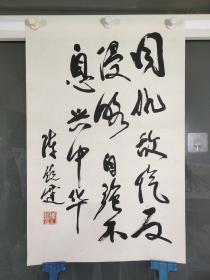 同仇敌忾反
侵略自强不
息兴中华